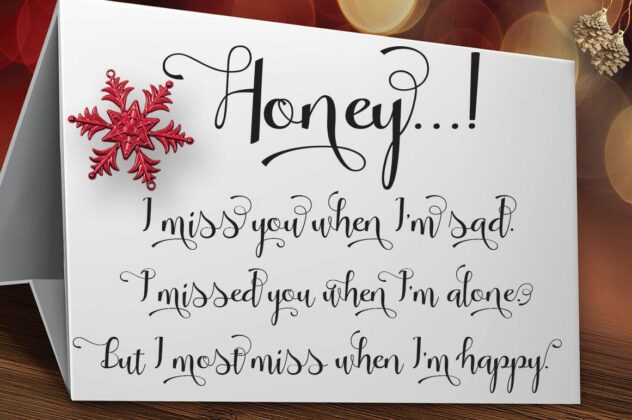 Honey...!
I miss you when I'm sad.
I missed you when I'm alone.
But I most miss when I'm happy.